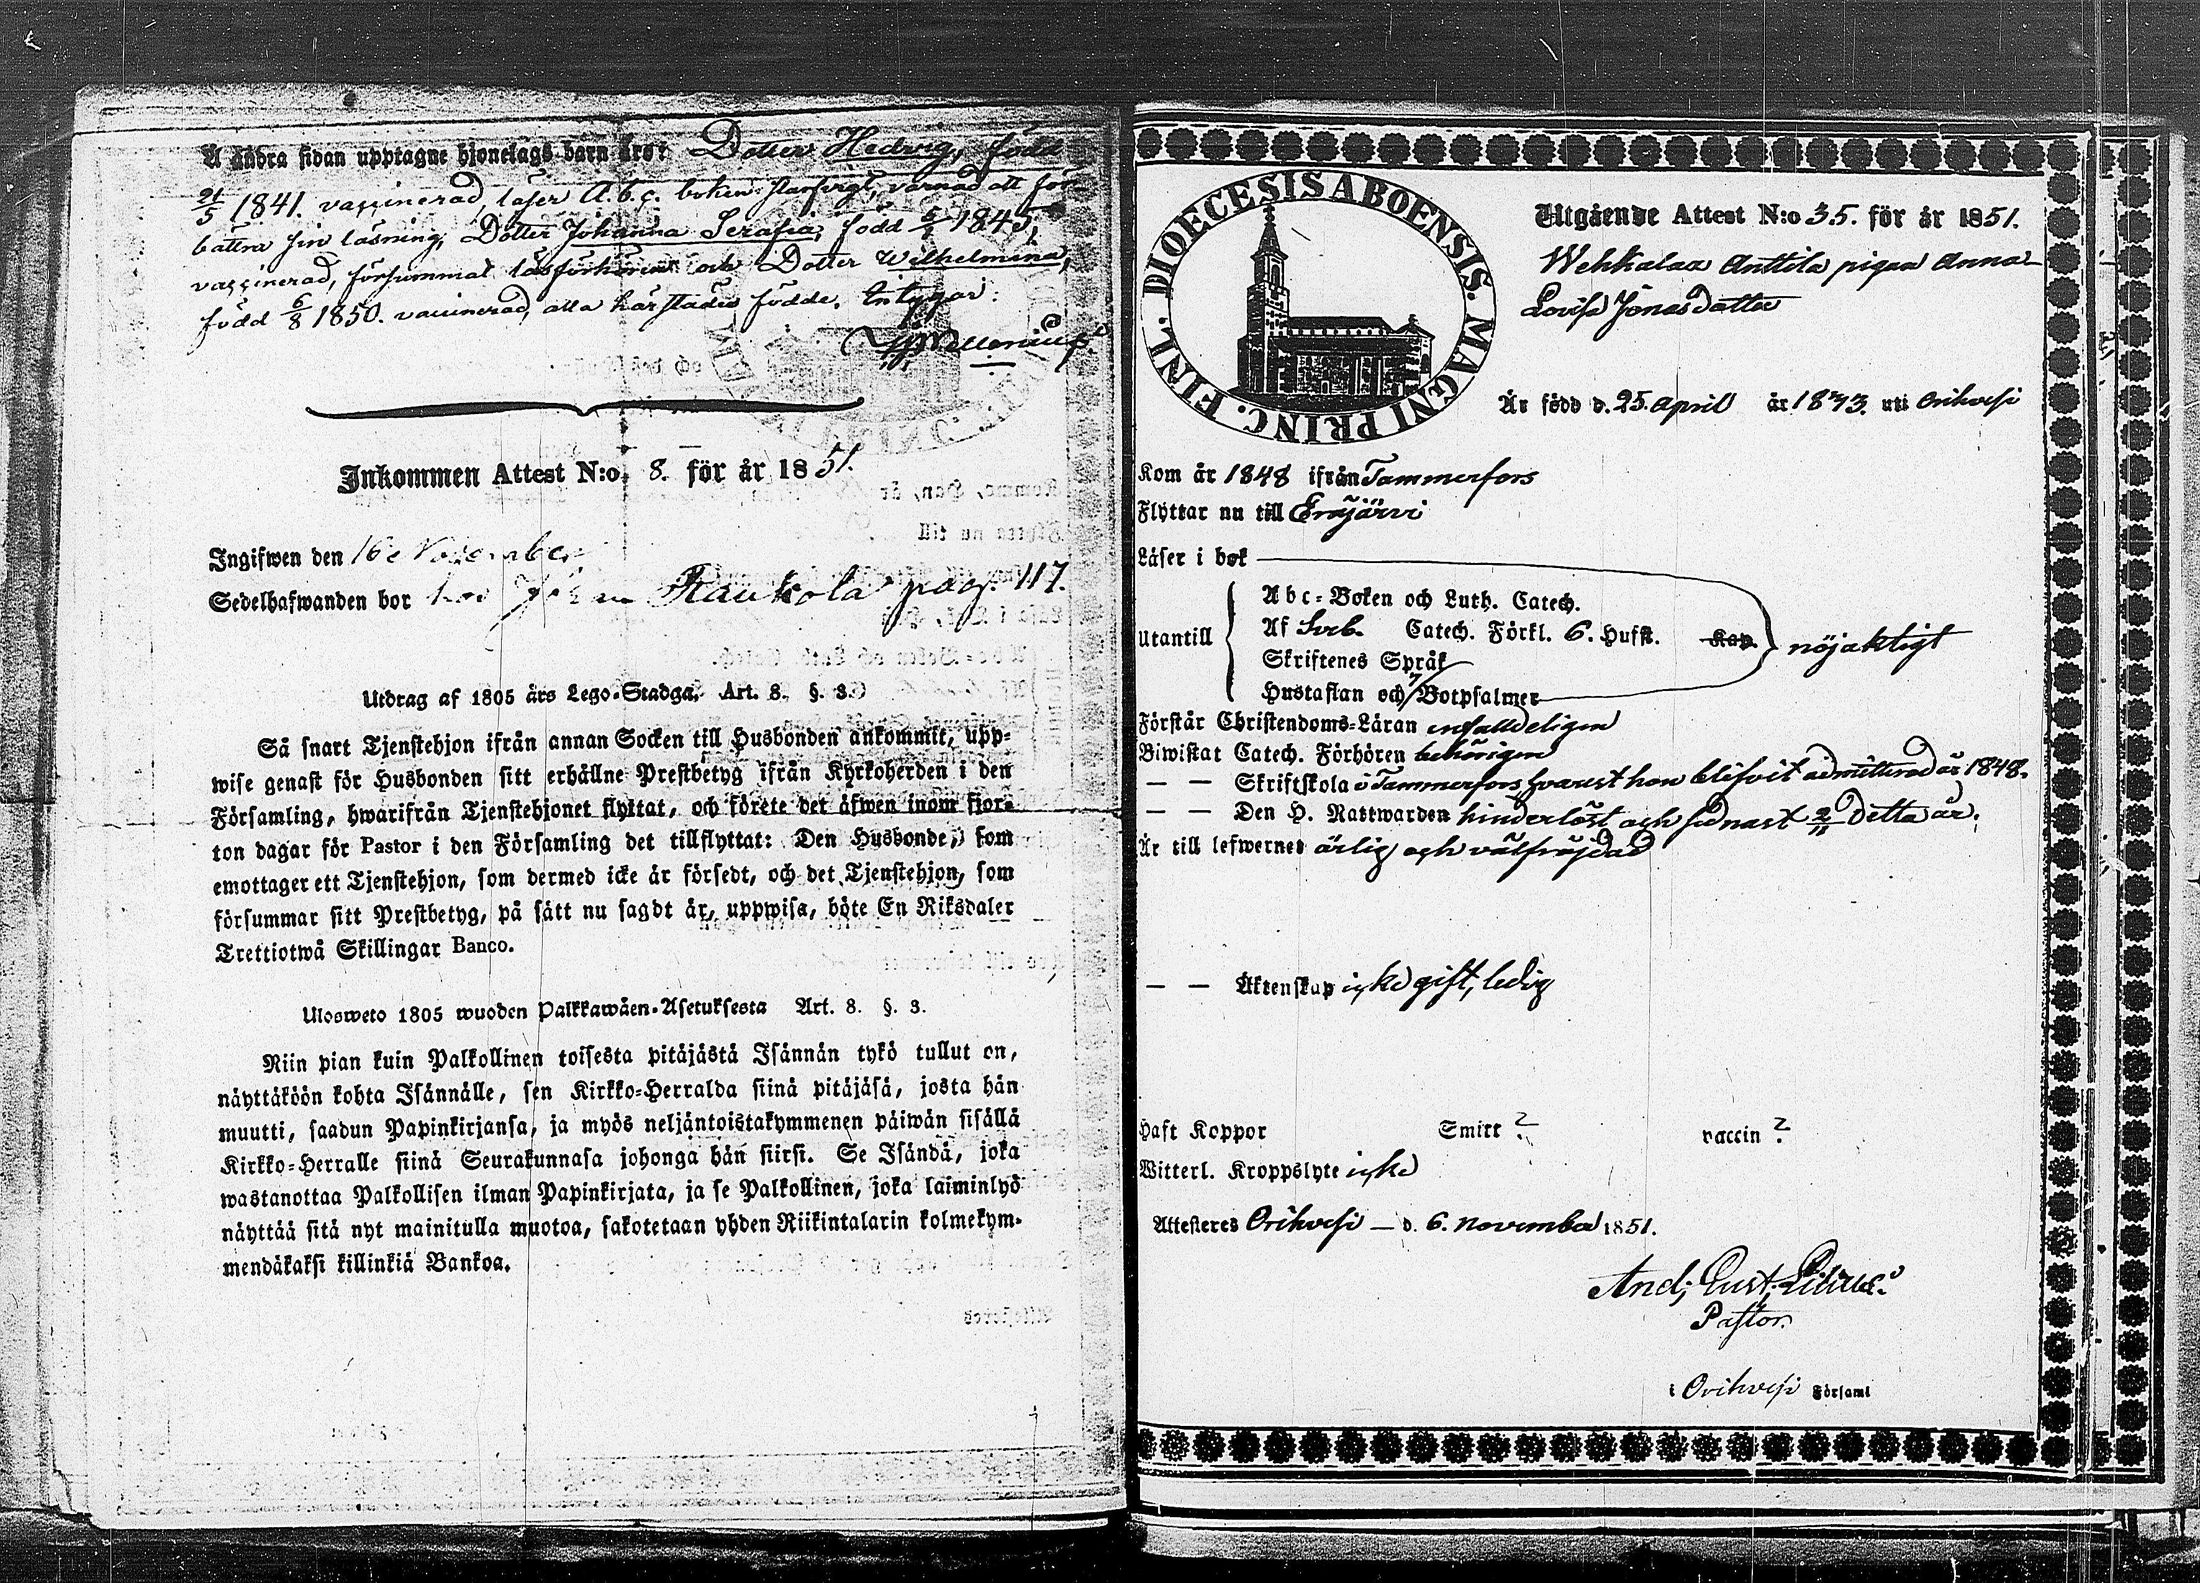 Å andra sidan upptagne hjonelags barn äro: Dotter Hedwig, född
21/5 1841. vaccinerad, läser A.b.c. boken starfvigt, varnad att för-
bättra sin läsning, Dotter Johanna Serafia, född 5/2 1845,
vaccinerad, försummat läsförhören och Dotter Wilhelmina,
född 6/8 1850. vaccinerad, alla härstädes födde. Intygar:
Inkommen Attest N:o 8. för år 1851.
Ingifwen den 16e November
Sedelhafwanden bor hos Raukola pag. 117.
Utdrag af 1805 års Lego-Stadga. Art. 8. §. 3.
Så snart Tjenstehjon ifrån annan Socken till Husbonden ankommit, upp-
wise genast för Husbonden sitt erhållne Prestbetyg ifrån Kyrkoherden i den
Församling, hwarifrån Tjenstehjonet flyttat, och förete det äfwen inom fjor-
ton dagar för Pastor i den Församling det tillflyttat: Den Husbonde, som
emottager ett Tjenstehjon, som dermed icke är försedt, och det Tjenstehjon, som
försummar sitt Prestbetyg, på sätt nu sagdt är, uppwisa, böte En Riksdaler
Trettiotwå Skillingar Banco.
Ulosweto 1805 wuoden Palkkawäen-Asetuksesta Art. 8. §. 3.
Niin pian kuin Palkollinen toisesta pitäjästä Isännän tykö tullut on,
näyttäköön kohta Isännälle, sen Kirkko-Herralda siinä pitäjäsä, josta hän
muutti, saadun Papinkirjansa, ja myös neljäntoistakymmenen päiwän sisällä
Kirkko-Herralle siinä Seurakunnasa johonga hän siirsi. Se Isändä, joka
wastanottaa Palkollisen ilman Papinkirjata, ja se Palkollinen, joka laiminlyö
näyttää sitä nyt mainitulla muotoa, sakotetaan yhden Riikintalarin kolmekym-
mendäkaksi killinkiä Bankoa.
DIOECESIS ABOENSIS. MAGNI PRINC. FINL.
Utgående Attest N:o 35. för år 1851.
Wehkalax Anttila pigan Anna
Lovisa Jonasdotter
Är född d. 25. april år 1833. uti Orihvesi
Kom år 1848 ifrån Tammerfors
Flyttar nu till Eräjärvi
Läser i bok
Utantill
Abc-Boken och Luth. Catech.
Af Sveb. Catech. Förkl. 6. Hufst. Kap. nöjaktigt
Skriftenes Språk
Hustaflan och 7 Botpsalmer
Förstår Christendoms-Läran enfalldeligen
Biwistat Catech. Förhören behörigen
— — Skriftskola i Tammerfors, hvarest hon blifvit admitterad år 1848.
— — Den H. Nattwarden hinderlöst och sednast 2/11 detta år.
Är till lefwernet ärlig och välfrejdad
— — Äktenskap icke gift, ledig
Haft Koppor Smitt ? vaccin ?
Witterl. Kroppslyte icke
Attesteres Orihvesi — d. 6. november 1851.
And. Gust. Lilius.
Pastor.
i Orihvesi Församl